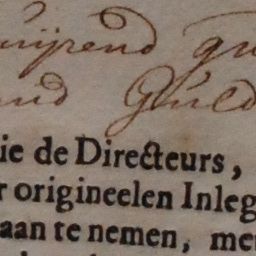 gu
Guld
ie de Directeurs,
r origineelen Inleg
aan te nemen, me